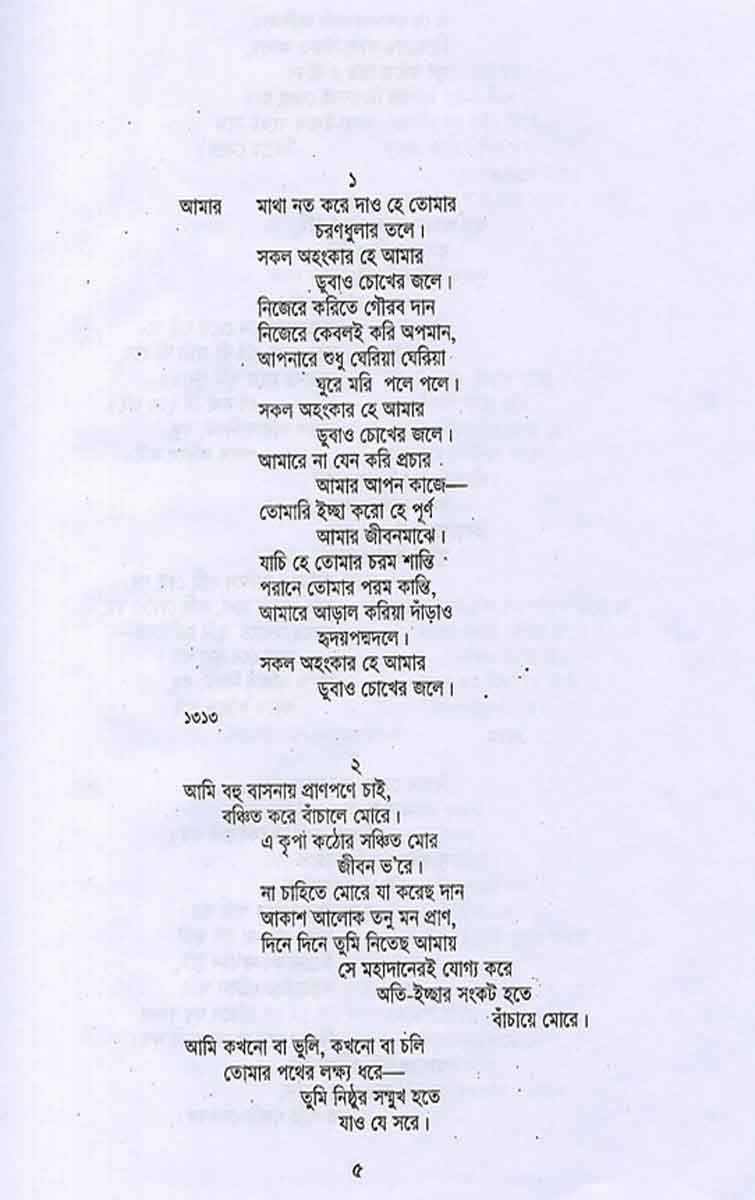 ১
আমার মাথা নত করে দাও হে তোমার
চরণধুলার তলে।
সকল অহংকার হে আমার
ডুবাও চোখের জলে।
নিজেরে করিতে গৌরব দান
নিজেরে কেবলই করি অপমান,
আপনারে শুধু ঘেরিয়া ঘেরিয়া
ঘুরে মরি পলে পলে।
সকল অহংকার হে আমার
ডুবাও চোখের জলে।
আমারে না যেন করি প্রচার
আমার আপন কাজে—
তোমারি ইচ্ছা করো হে পূর্ণ
আমার জীবনমাঝে।
যাচি হে তোমার চরম শান্তি
পরানে তোমার পরম কান্তি,
আমারে আড়াল করিয়া দাঁড়াও
হৃদয়পদ্মদলে।
সকল অহংকার হে আমার
ডুবাও চোখের জলে।
১৩১৩
২
আমি বহু বাসনায় প্রাণপণে চাই,
বঞ্চিত করে বাঁচালে মোরে।
এ কৃপা কঠোর সঞ্চিত মোর
জীবন ভ'রে।
না চাহিতে মোরে যা করেছ দান
আকাশ আলোক তনু মন প্রাণ,
দিনে দিনে তুমি নিতেছ আমায়
সে মহাদানেরই যোগ্য করে
অতি-ইচ্ছার সংকট হতে
বাঁচায়ে মোরে।
আমি কখনো বা ভুলি, কখনো বা চলি
তোমার পথের লক্ষ্য ধরে—
তুমি নিষ্ঠুর সম্মুখ হতে
যাও যে সরে।
৫